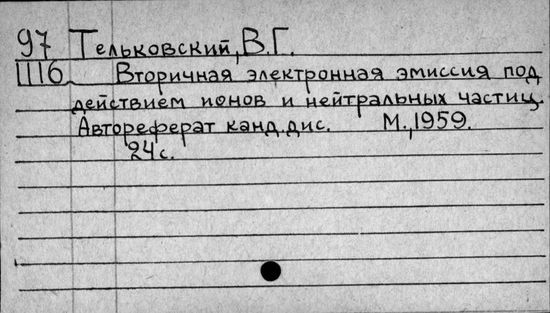 97 Тельковский, В.Г.
1116 Вторичная электронная эмиссия под
действием ионов и нейтральных частиц.
Автореферат канд.дис. М.,1959.
24с.